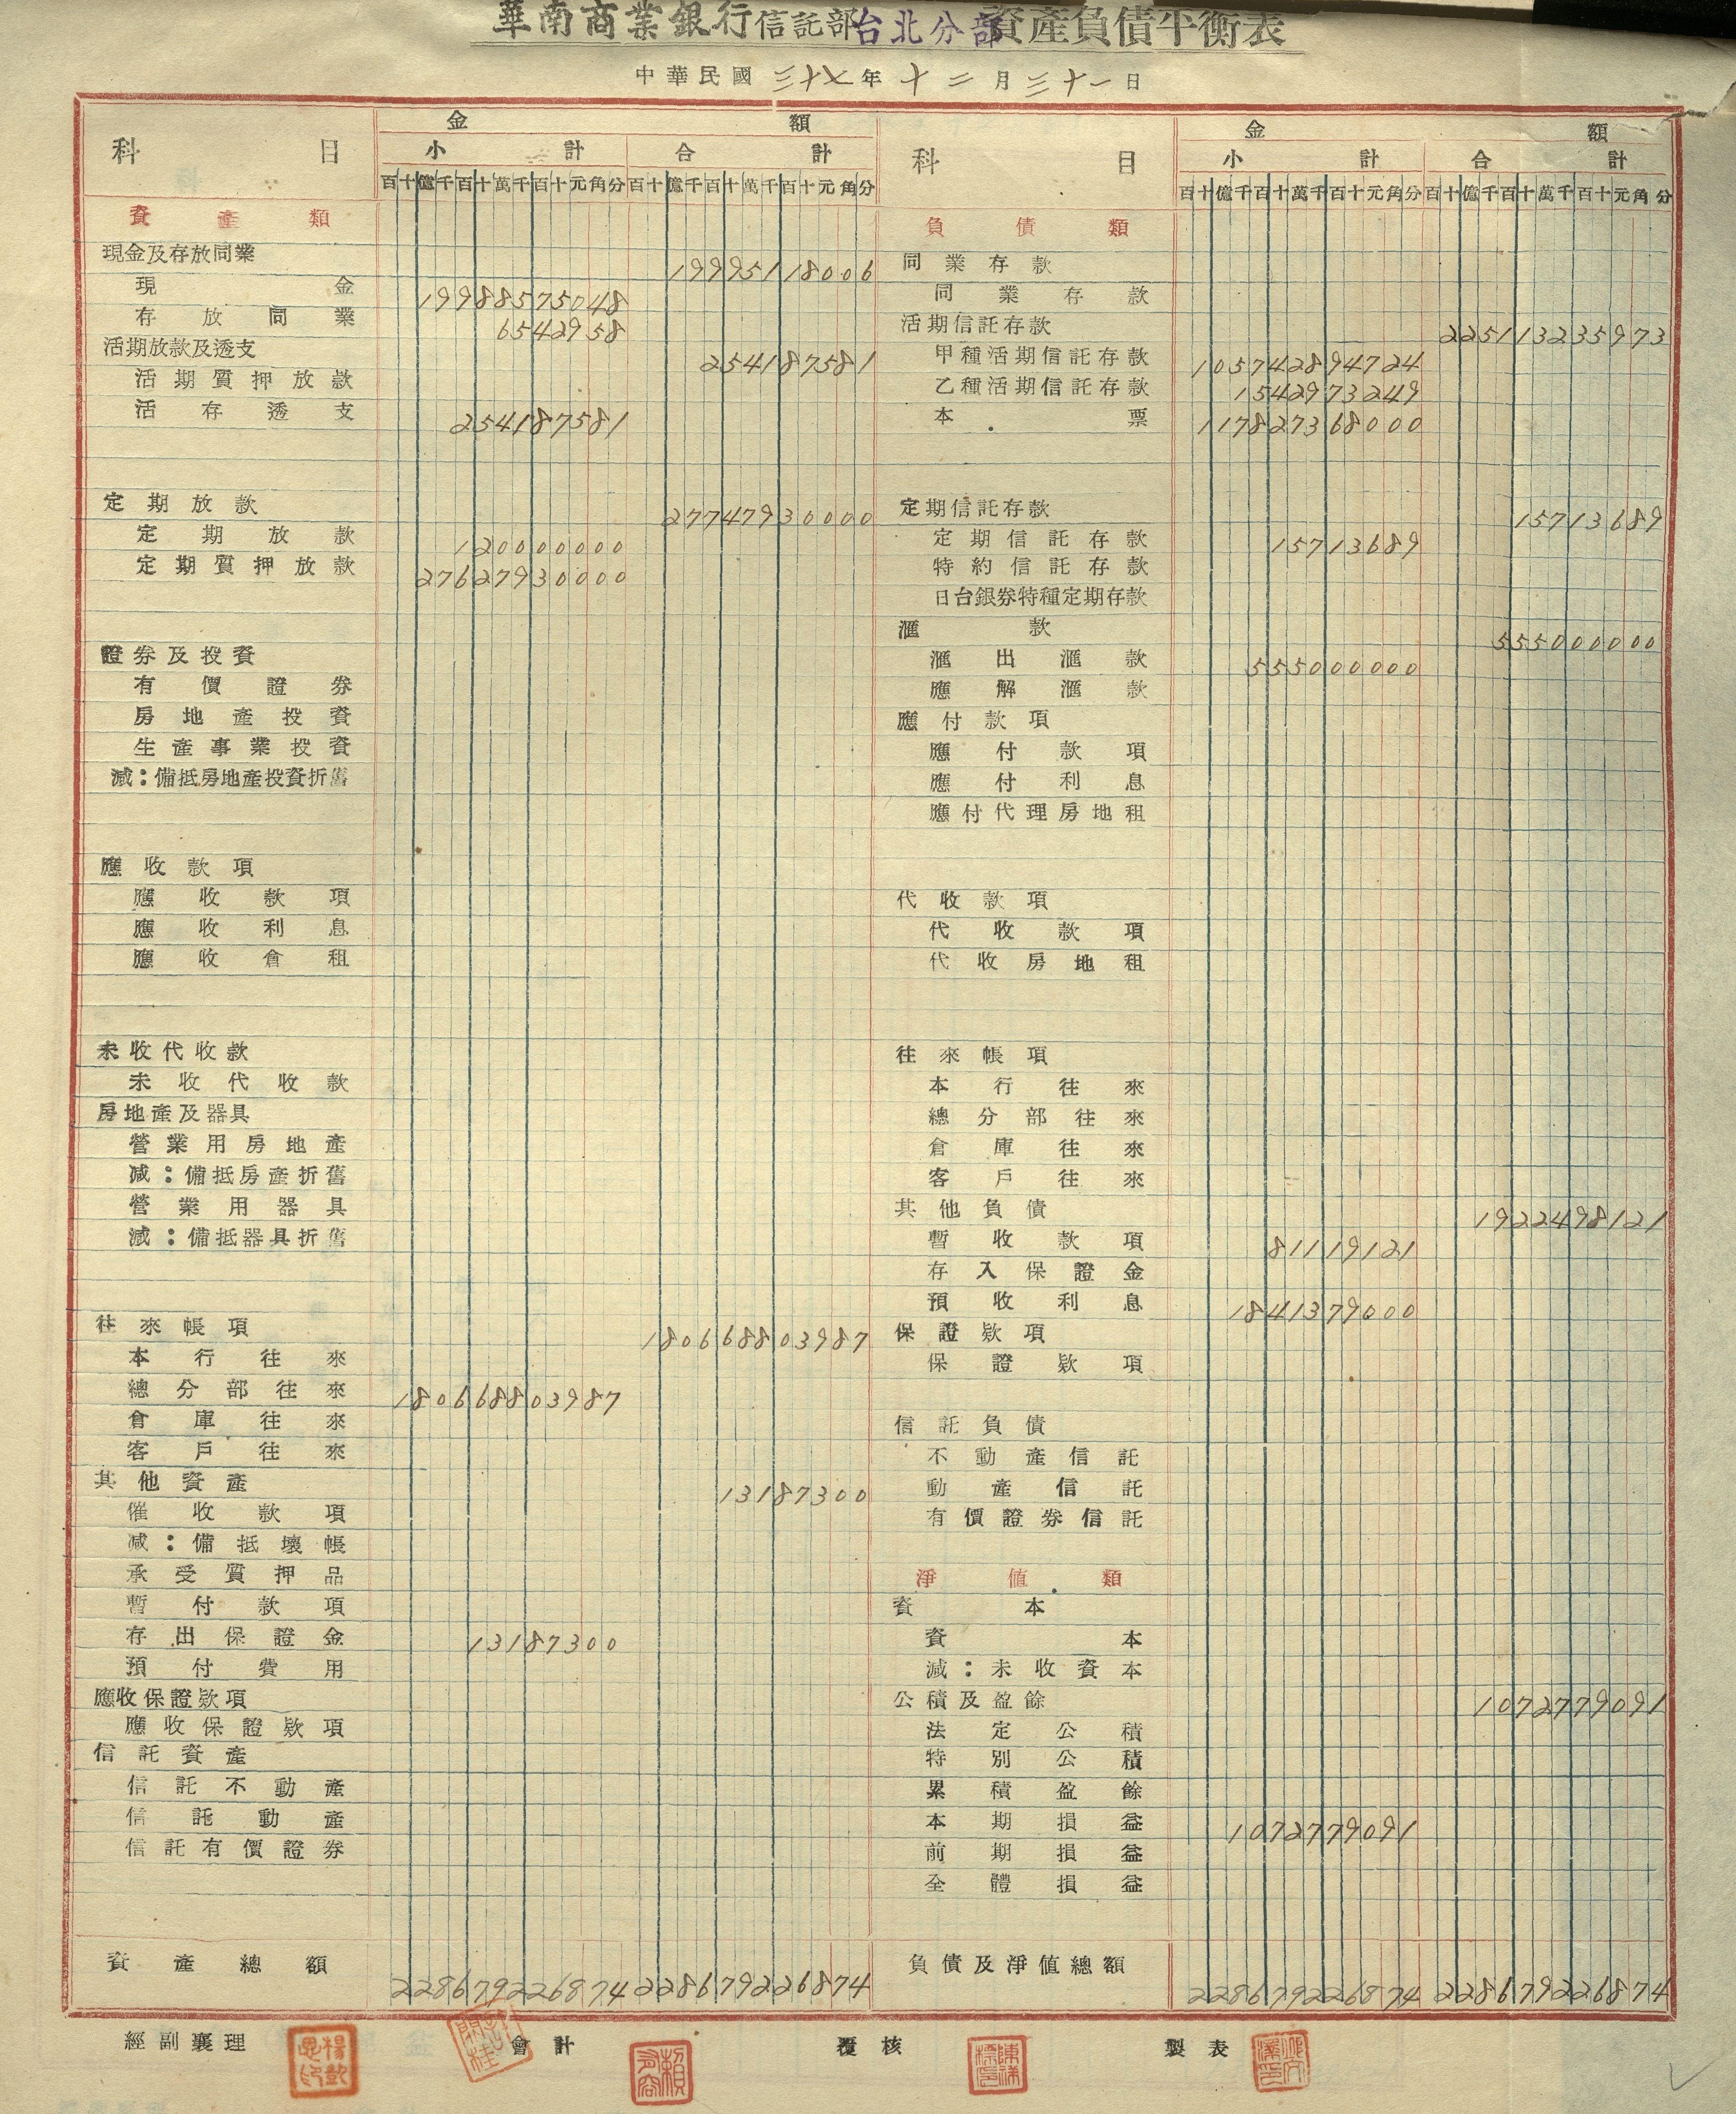 華南商業銀行信託部台北分部資產負債平衡表
中華民國三十七年十二月三十一日
科目 金額 科目 金額
小計 合計 小計 合計
百十億千百十萬千百十元角分 百十億千百十萬千百十元角分 百十億千百十萬千百十元角分 百十億千百十萬千百十元角分
資產類
現金及存放同業 19995118006
現金 19988575048
存放同業 6542958
活期放款及透支 254187581
活期質押放款
活存透支 254187581
定期放款 27747930000
定期放款 120000000
定期質押放款 27627930000
證券及投資
有價證券
房地產投資
生產事業投資
減：備抵房地產投資折舊
應收款項
應收款項
應收利息
應收倉租
未收代收款
未收代收款
房地產及器具
營業用房地產
減：備抵房產折舊
營業用器具
減：備抵器具折舊
往來帳項 180668803987
本行往來
總分部往來 180668803987
倉庫往來
客戶往來
其他資產 13187300
催收款項
減：備抵壞帳
承受質押品
暫付款項
存出保證金 13187300
預付費用
應收保證款項
應收保證款項
信託資產
信託不動產
信託動產
信託有價證券
資產總額 228679226874 228679226874
負債類
同業存款
同業存款
活期信託存款 225113235973
甲種活期信託存款 105742894724
乙種活期信託存款 1542973249
本票 117827368000
定期信託存款 15713689
定期信託存款 15713689
特約信託存款
日台銀券特種定期存款
滙款 555000000
滙出滙款 555000000
應解滙款
應付款項
應付款項
應付利息
應付代理房地租
代收款項
代收款項
代收房地租
往來帳項
本行往來
總分部往來
倉庫往來
客戶往來
其他負債 1922498121
暫收款項 81119121
存入保證金
預收利息 1841379000
保證款項
保證款項
信託負債
不動產信託
動產信託
有價證券信託
淨值類
資本
資本
減：未收資本
公積及盈餘 1072779091
法定公積
特別公積
累積盈餘
本期損益 1072779091
前期損益
全體損益
負債及淨值總額 228679226874 228679226874
經副襄理 會計 覆核 製表